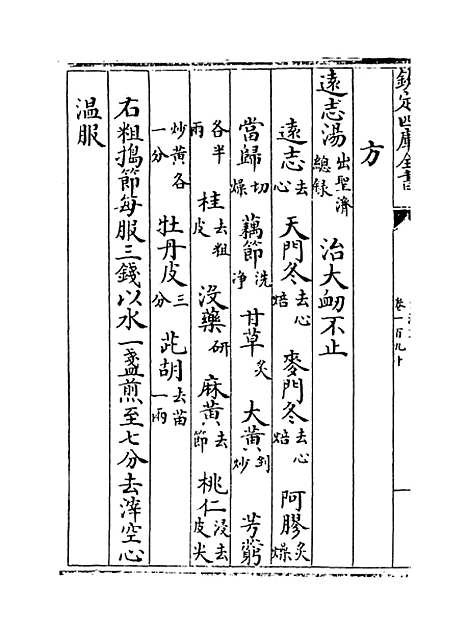 欽定四庫全書 卷一百九十
方
遠志湯出聖濟總錄 治大衄不止
遠志去心 天門冬去心焙 麥門冬去心焙 阿膠炙燥
當歸切燥 藕節洗淨 甘草炙 大黃剉炒 芳藭
各半兩 桂去粗皮 沒藥研 麻黃去節 桃仁浸去皮尖
炒黃各一分 牡丹皮三分 茈胡去苗一兩
右粗搗節每服三錢以水一盞煎至七分去滓空心
温服